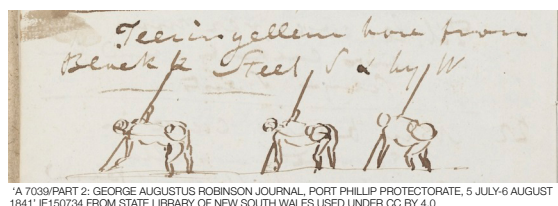 bore from
S & by W
'A 7039/PART 2: GEORGE AUGUSTUS ROBINSON JOURNAL, PORT PHILLIP PROTECTORATE, 5 JULY-6 AUGUST
1841' IE150734 FROM STATE LIBRARY OF NEW SOUTH WALES USED UNDER CC BY 4.0